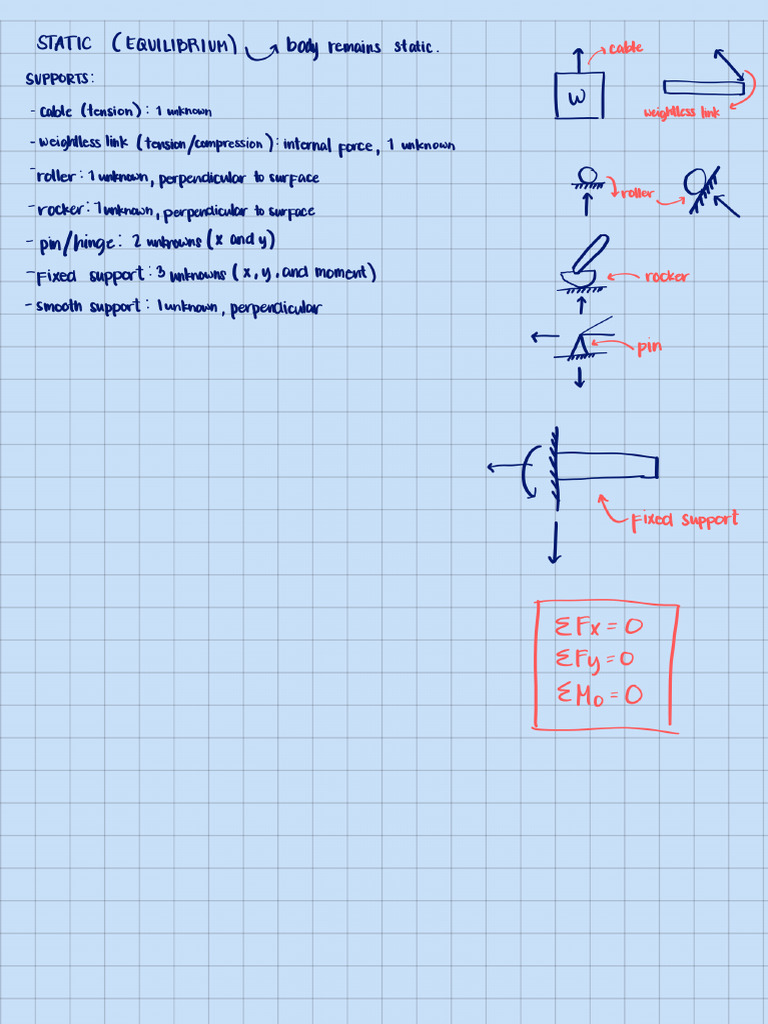 STATIC (EQUILIBRIUM) body remains static.
SUPPORTS:
- cable (tension): 1 unknown
- weightless link (tension/compression): internal force, 1 unknown
- roller: 1 unknown, perpendicular to surface
- rocker: 1 unknown, perpendicular to surface
- pin/hinge: 2 unknowns (x and y)
- Fixed support: 3 unknowns (x, y, and moment)
- smooth support: 1 unknown, perpendicular
cable
W
weightless link
roller
rocker
pin
Fixed support
ΣFx = 0
ΣFy = 0
ΣMo = 0